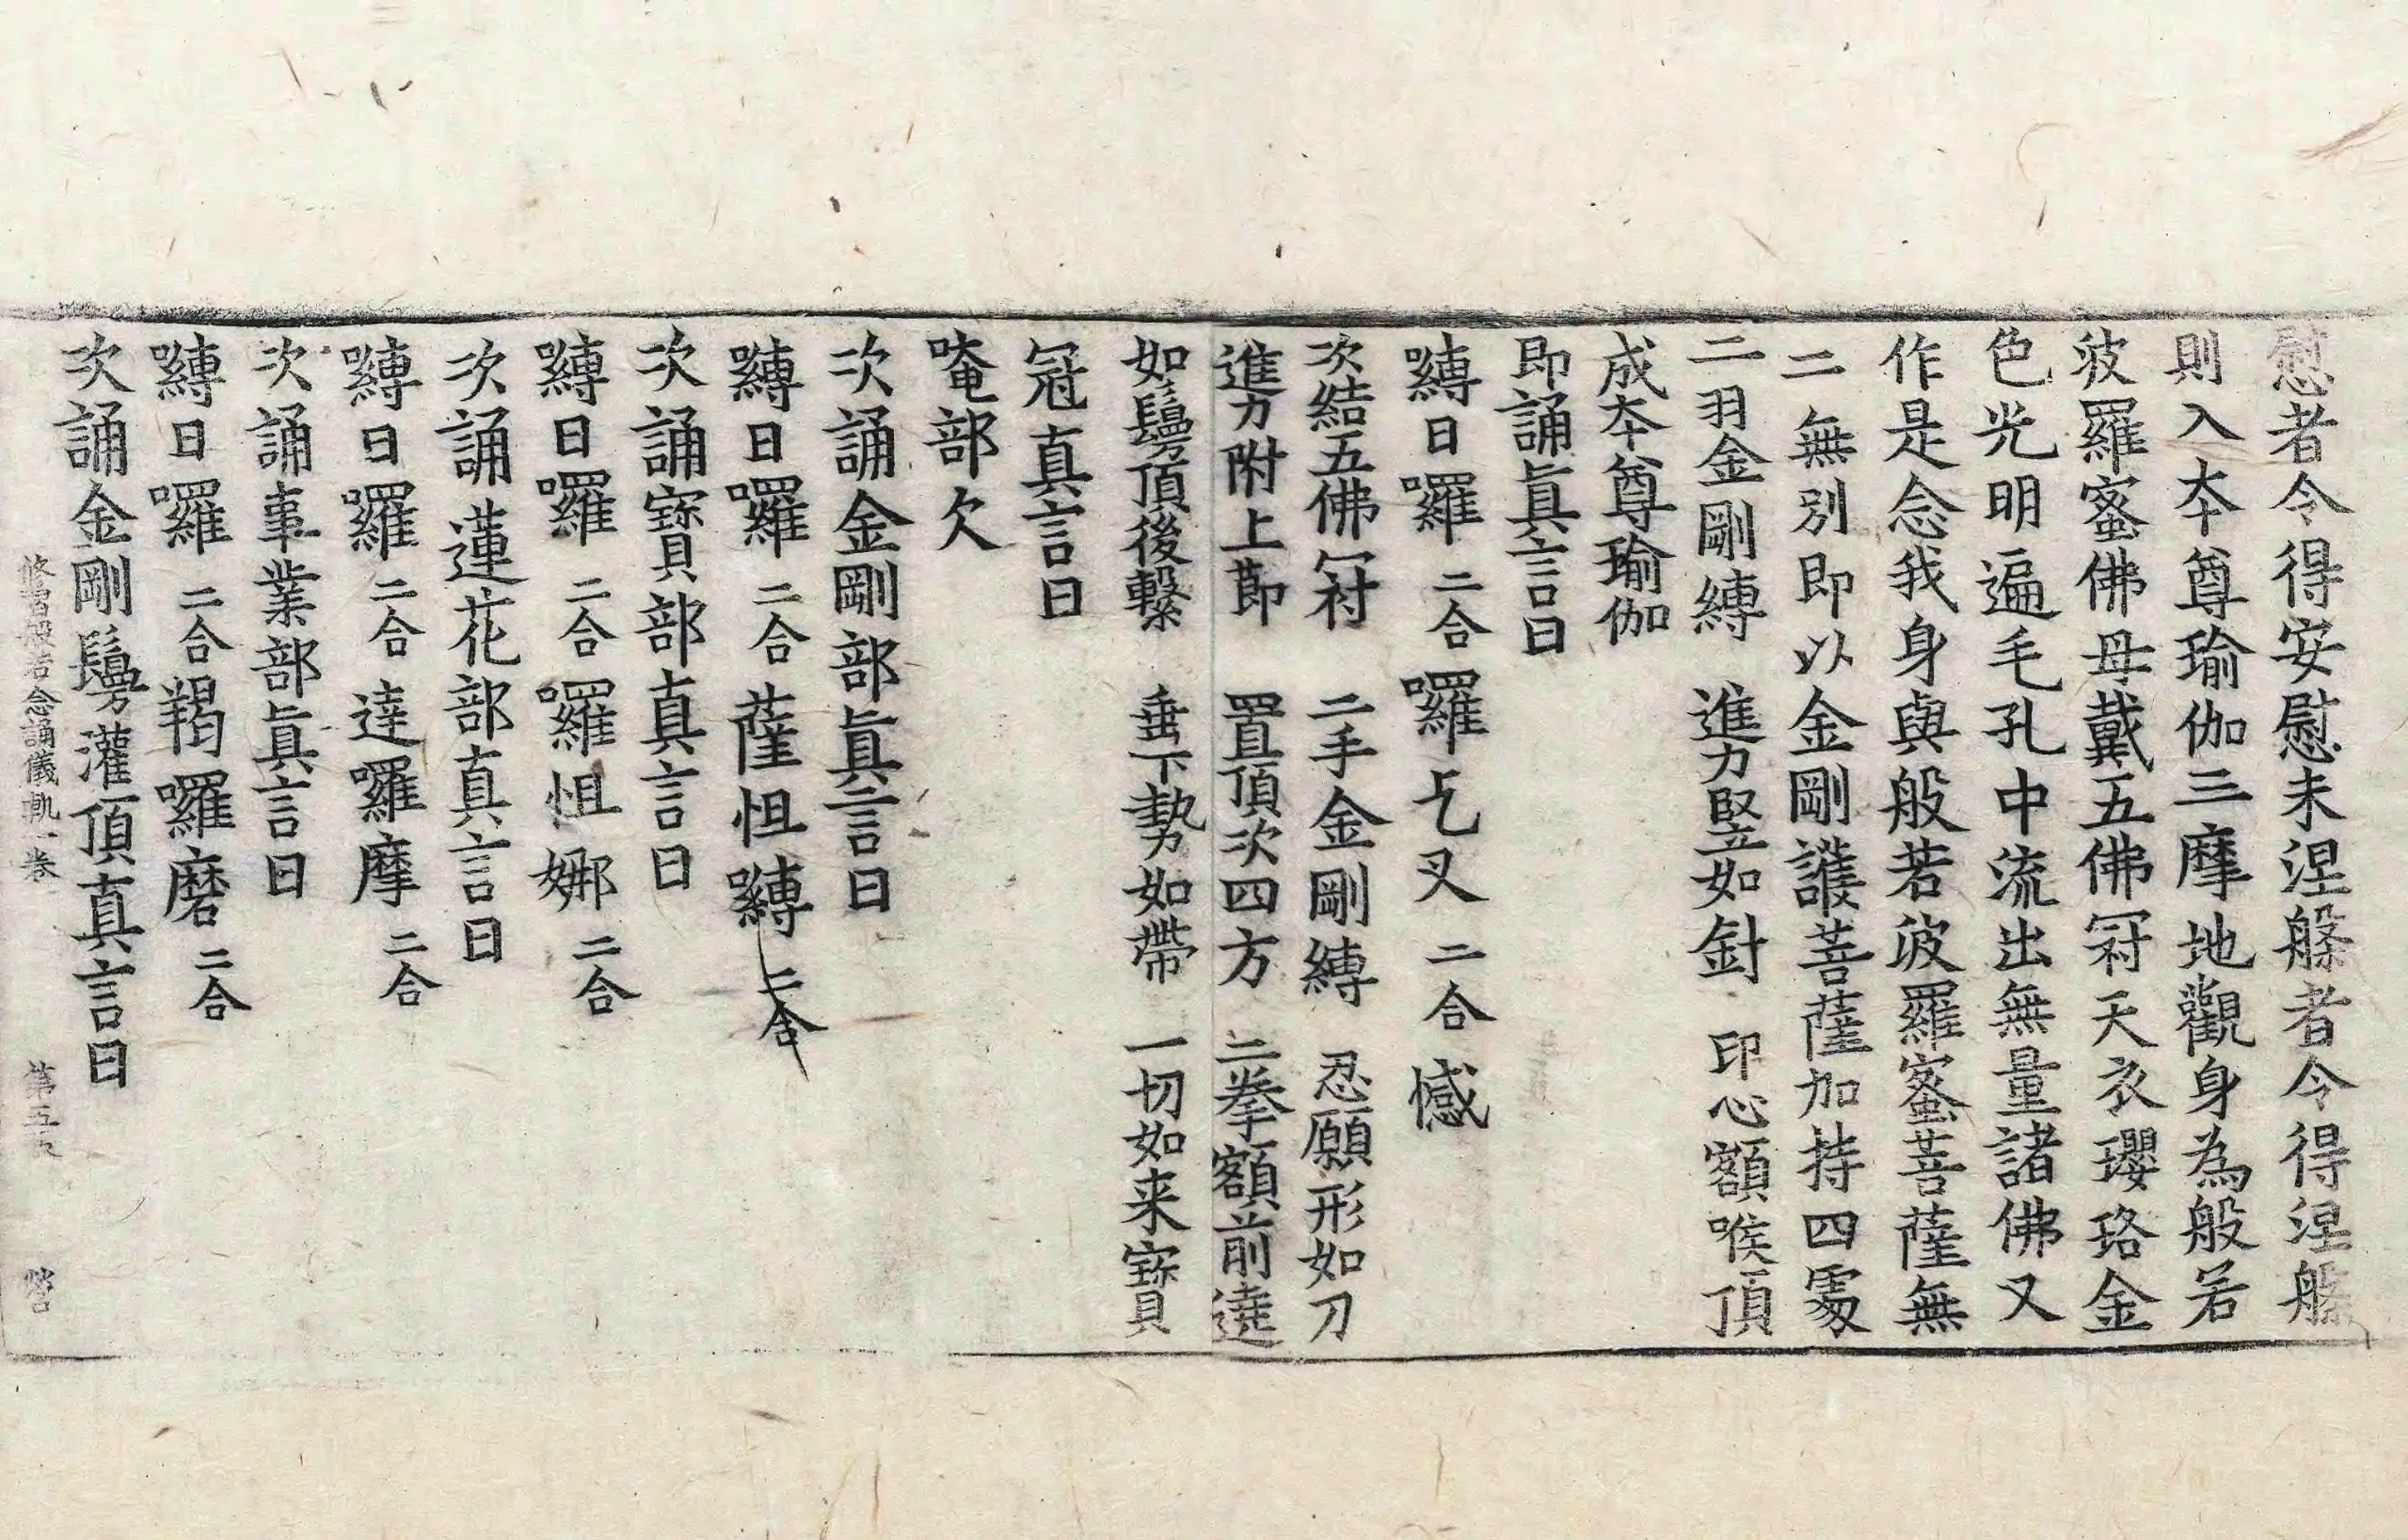 慰者令得安慰未涅槃者令得涅槃
則入本尊瑜伽三摩地觀身為般若
波羅蜜佛母戴五佛冠天衣瓔珞金
色光明遍毛孔中流出無量諸佛又
作是念我身與般若波羅蜜菩薩無
二無別即以金剛護菩薩加持四處
二羽金剛縛　進力竪如針　印心額喉頂
成本尊瑜伽
即誦眞言曰
嚩日囉二合囉乞叉二合憾
次結五佛冠　二手金剛縛　忍願形如刀
進力附上節　置頂次四方　二拳額前遶
如鬘頂後繫　垂下勢如帶　一切如来寳
冠真言曰
唵部欠
次誦金剛部眞言曰
嚩日囉二合薩怛嚩二合
次誦寳部真言曰
嚩日囉二合囉怛娜二合
次誦蓮花部真言曰
嚩日囉二合達囉摩二合
次誦事業部眞言曰
嚩日囉二合羯囉磨二合
次誦金剛鬘灌頂真言曰
修習般若念誦儀軌一卷　第五